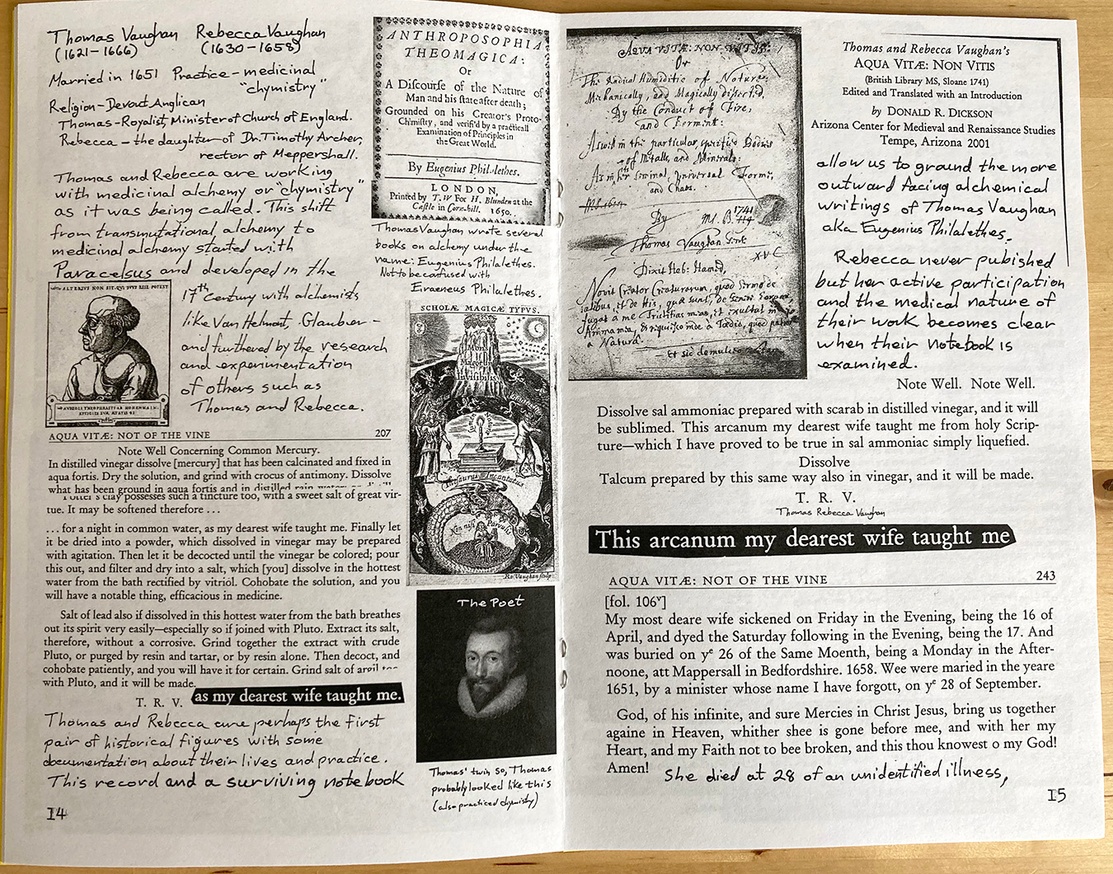 Thomas Vaughan Rebecca Vaughan
(1621-1666) (1630-1658)
Married in 1651 Practice - medicinal
"chymistry"
Religion - Devout Anglican
Thomas - Royalist, Minister of Church of England.
Rebecca - the daughter of Dr. Timothy Archer,
rector of Meppershall.
Thomas and Rebecca are working
with medicinal alchemy or "chymistry"
as it was being called. This shift
from transmutational alchemy to
medicinal alchemy started with
Paracelsus and developed in the
17th century with alchemists
like Van Helmont, Glauber -
and furthered by the research
and experimentation
of others such as
Thomas and Rebecca.
AQUA VITÆ: NOT OF THE VINE 207
Note Well Concerning Common Mercury.
In distilled vinegar dissolve [mercury] that has been calcinated and fixed in
aqua fortis. Dry the solution, and grind with crocus of antimony. Dissolve
what has been ground in aqua fortis and in distilled rain
Potter's clay possesses such a tincture too, with a sweet salt of great vir-
tue. It may be softened therefore ...
... for a night in common water, as my dearest wife taught me. Finally let
it be dried into a powder, which dissolved in vinegar may be prepared
with agitation. Then let it be decocted until the vinegar be colored; pour
this out, and filter and dry into a salt, which [you] dissolve in the hottest
water from the bath rectified by vitriol. Cohobate the solution, and you
will have a notable thing, efficacious in medicine.
Salt of lead also if dissolved in this hottest water from the bath breathes
out its spirit very easily—especially so if joined with Pluto. Extract its salt,
therefore, without a corrosive. Grind together the extract with crude
Pluto, or purged by resin and tartar, or by resin alone. Then decoct, and
cohobate patiently, and you will have it for certain. Grind salt of
with Pluto, and it will be made.
T. R. V. as my dearest wife taught me.
Thomas and Rebecca are perhaps the first
pair of historical figures with some
documentation about their lives and practice.
This record and a surviving notebook
14
ANTHROPOSOPHIA
THEOMAGICA:
Or
A Discourse of the Nature of
Man and his state after death;
Grounded on his Creator's Proto-
Chimistry, and verifi'd by a practicall
Examination of Principles in
the Great World.
By Eugenius Philalethes.
LONDON,
Printed by T. W for H. Blunden at the
Castle in Corn-hill. 1650.
Thomas Vaughan wrote several
books on alchemy under the
name: Eugenius Philalethes.
Not to be confused with
Eraeneus Philalethes.
SCHOLÆ MAGICÆ TYPVS.
The Poet
Thomas' twin, so, Thomas
probably looked like this
(also practiced chymistry)
AQUA VITÆ: NON VITIS:
Or
The Radical Humiditie of Nature:
Mechanically, and Magically dissected,
By the Conduct of Fire,
and Ferment:
As well in the particular, specific Bodies
of Metalls, and Minerals:
As in
and Chaos.
By
Thomas Vaughan Gent
Thomas and Rebecca Vaughan's
AQUA VITÆ: NON VITIS
(British Library MS, Sloane 1741)
Edited and Translated with an Introduction
by DONALD R. DICKSON
Arizona Center for Medieval and Renaissance Studies
Tempe, Arizona 2001
allow us to ground the more
outward facing alchemical
writings of Thomas Vaughan
aka Eugenius Philalethes.
Rebecca never pubished
but her active participation
and the medical nature of
their work becomes clear
when their notebook is
examined.
Note Well. Note Well.
Dissolve sal ammoniac prepared with scarab in distilled vinegar, and it will
be sublimed. This arcanum my dearest wife taught me from holy Scrip-
ture—which I have proved to be true in sal ammoniac simply liquefied.
Dissolve
Talcum prepared by this same way also in vinegar, and it will be made.
T. R. V.
Thomas Rebecca Vaughan
This arcanum my dearest wife taught me
AQUA VITÆ: NOT OF THE VINE 243
[fol. 106v]
My most deare wife sickened on Friday in the Evening, being the 16 of
April, and dyed the Saturday following in the Evening, being the 17. And
was buried on ye 26 of the Same Moenth, being a Monday in the After-
noone, att Mappersall in Bedfordshire. 1658. Wee were maried in the yeare
1651, by a minister whose name I have forgott, on ye 28 of September.
God, of his infinite, and sure Mercies in Christ Jesus, bring us together
againe in Heaven, whither shee is gone before mee, and with her my
Heart, and my Faith not to bee broken, and this thou knowest o my God!
Amen!
She died at 28 of an unidentified illness,
15